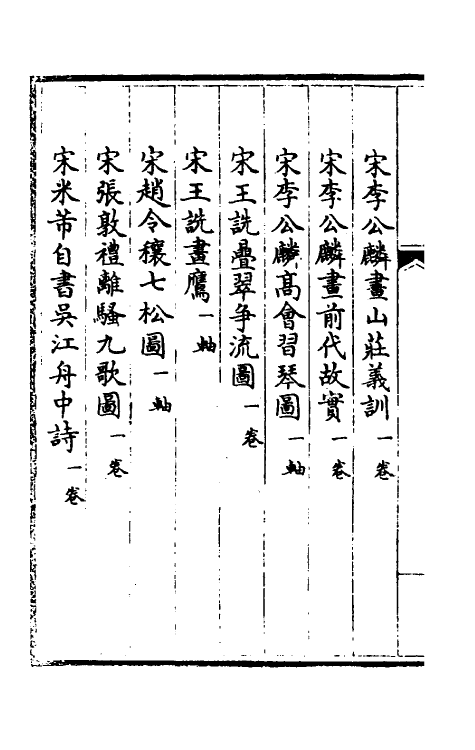 宋李公麟畫山莊義訓一卷
宋李公麟畫前代故實一卷
宋李公麟高會習琴圖一軸
宋王詵疊翠争流圖一卷
宋王詵畫鷹一軸
宋趙令穰七松圖一軸
宋張敦禮離騷九歌圖一卷
宋米芾自書吳江舟中詩一卷